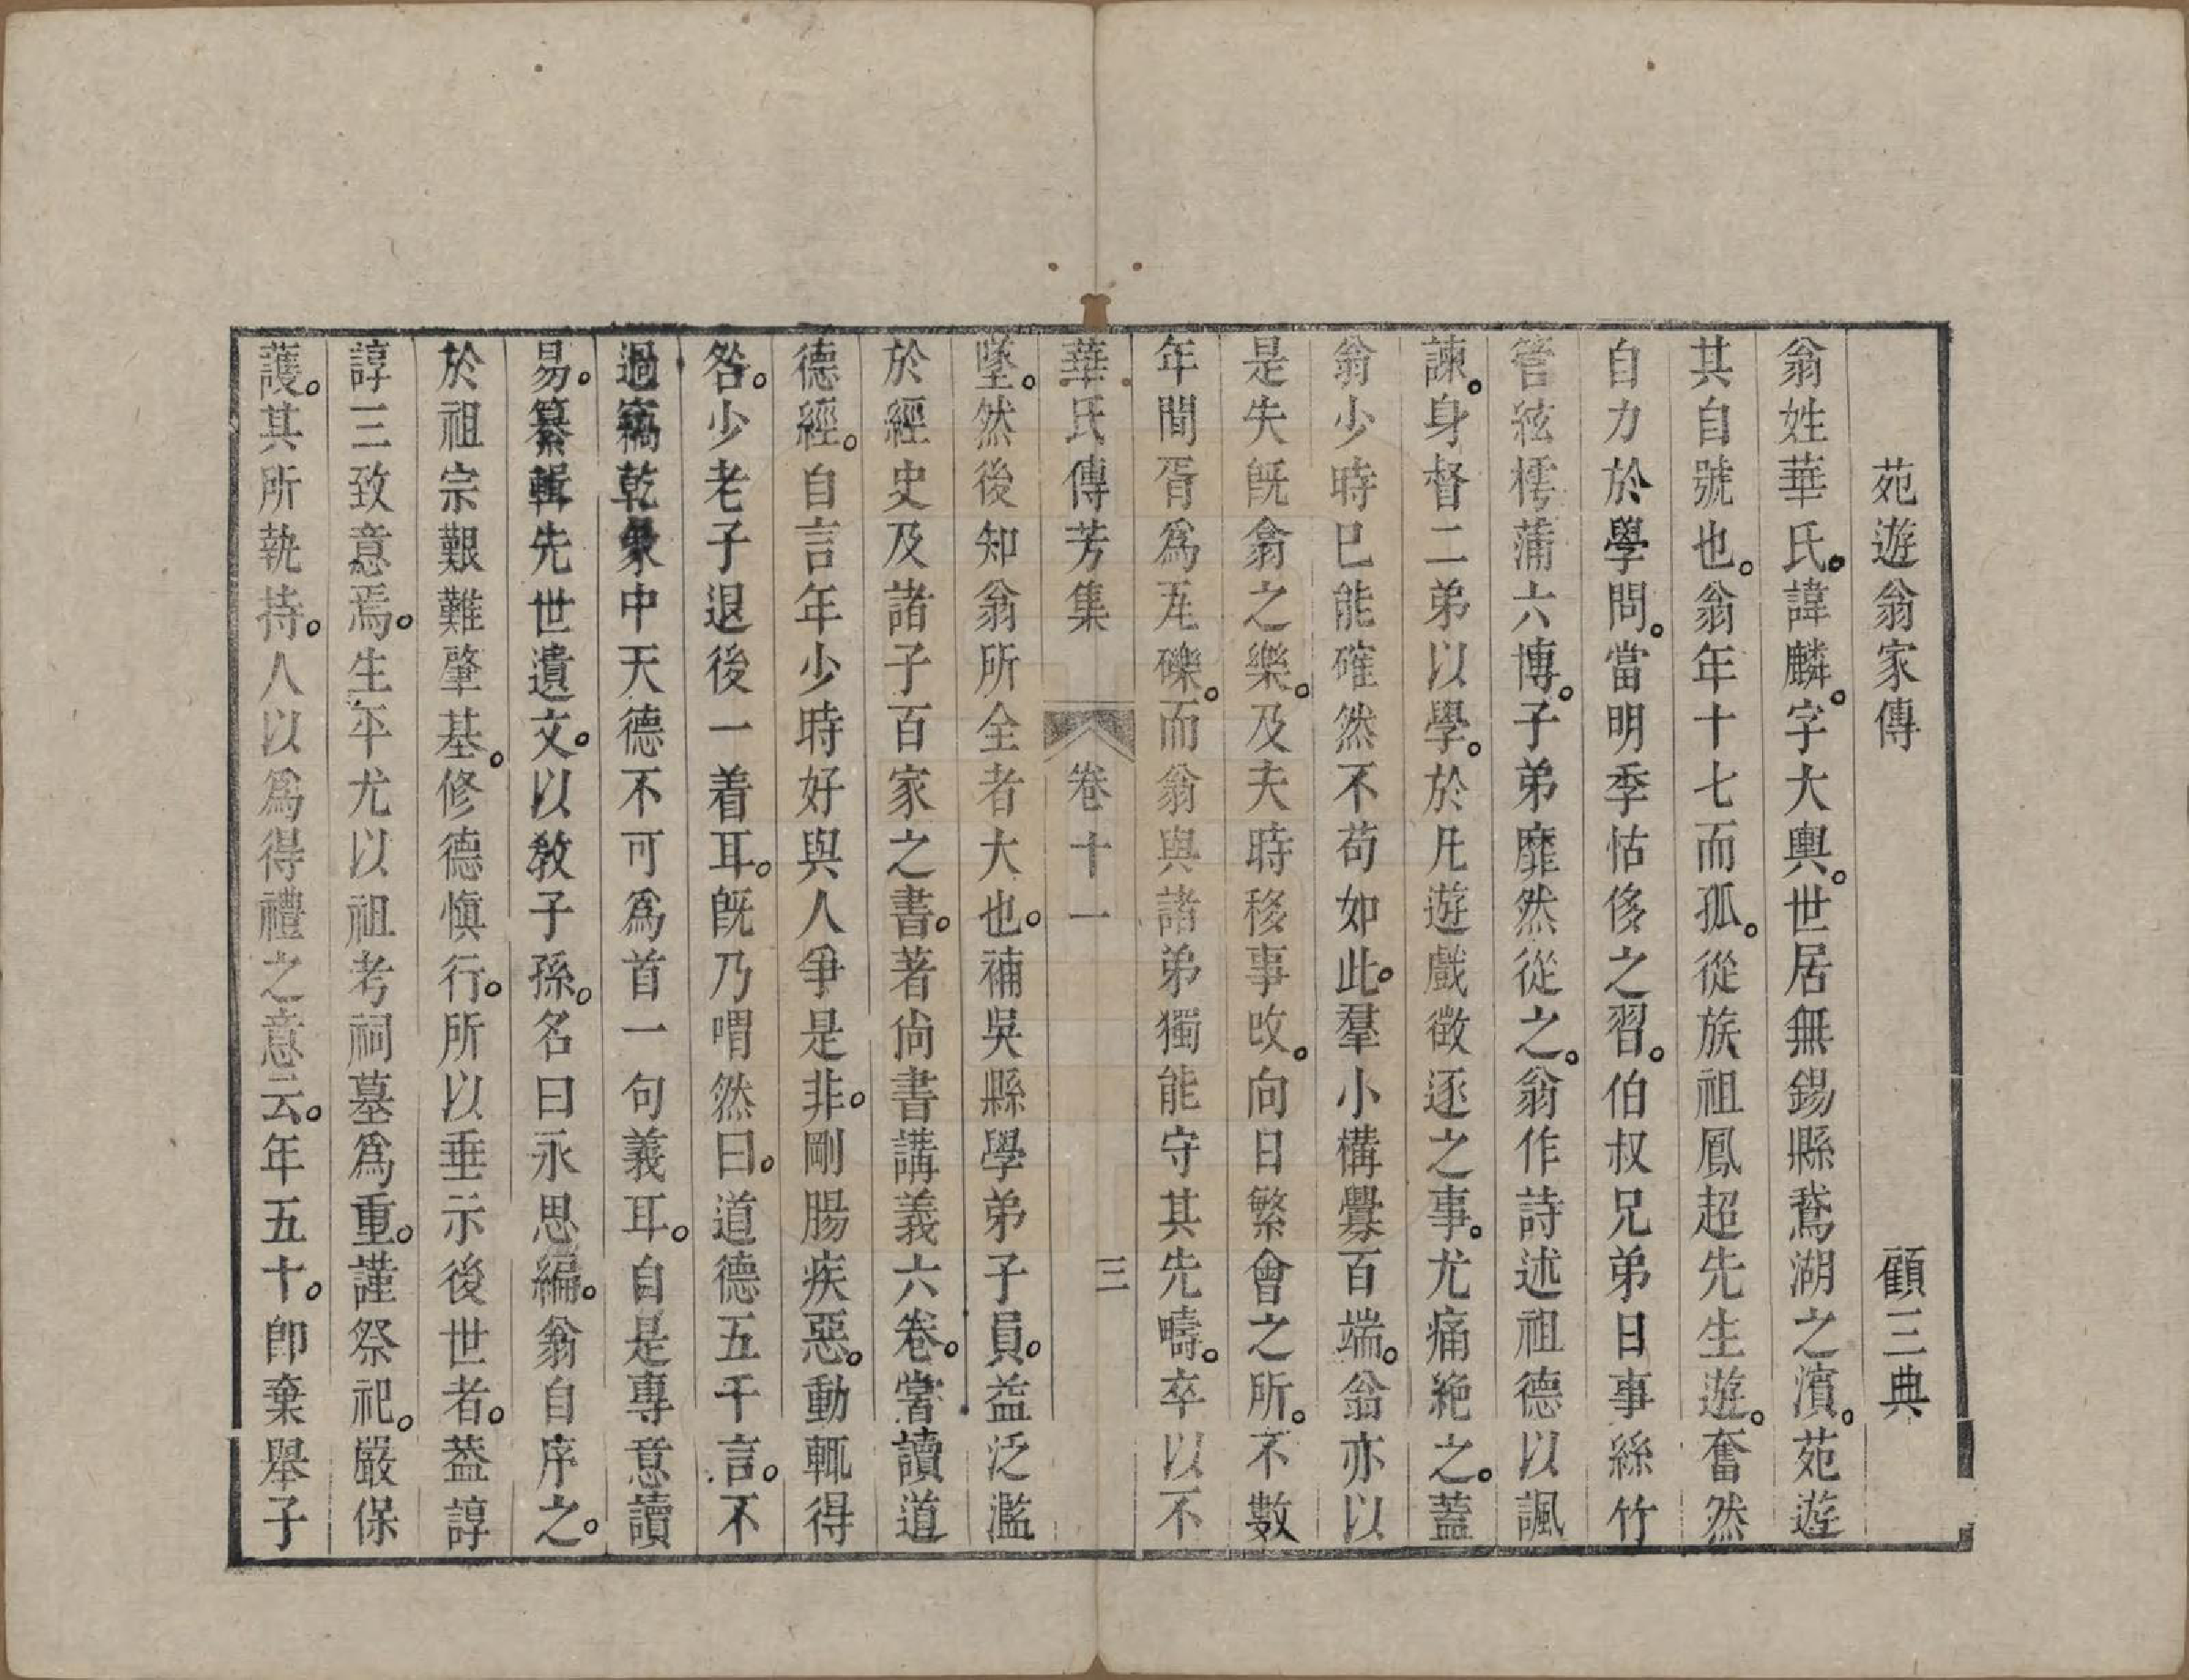 苑遊翁家傳　顧三典
翁姓華氏。諱麟。字大輿。世居無錫縣鵞湖之濱。苑遊
其自號也。翁年十七而孤。從族祖鳳超先生遊。奮然
自力於學問。當明季怙侈之習。伯叔兄弟日事絲竹
管絃樗蒲六博。子弟靡然從之。翁作詩述祖德以諷
諫。身督二弟以學。於凡遊戲徵逐之事。尤痛絶之。蓋
翁少時已能確然不苟如此。羣小構釁百端。翁亦以
是失旣翕之樂。及夫時移事改。向日繁會之所。不數
年間胥爲瓦礫。而翁與諸弟獨能守其先疇。卒以不
華氏傳芳集　卷十一　三
墜。然後知翁所全者大也。補吳縣學弟子員。益泛濫
於經史及諸子百家之書。著尚書講義六卷。嘗讀道
德經。自言年少時好與人爭是非。剛腸疾惡。動輒得
咎。少老子退後一着耳。旣乃喟然曰。道德五千言。不
過竊乾象中天德不可爲首一句義耳。自是專意讀
易。纂輯先世遺文。以教子孫。名曰永思編。翁自序之。
於祖宗艱難肇基。修德愼行。所以垂示後世者。葢諄
諄三致意焉。生平尤以祖考祠墓爲重。謹祭祀。嚴保
護。其所執持。人以爲得禮之意云。年五十。卽棄舉子